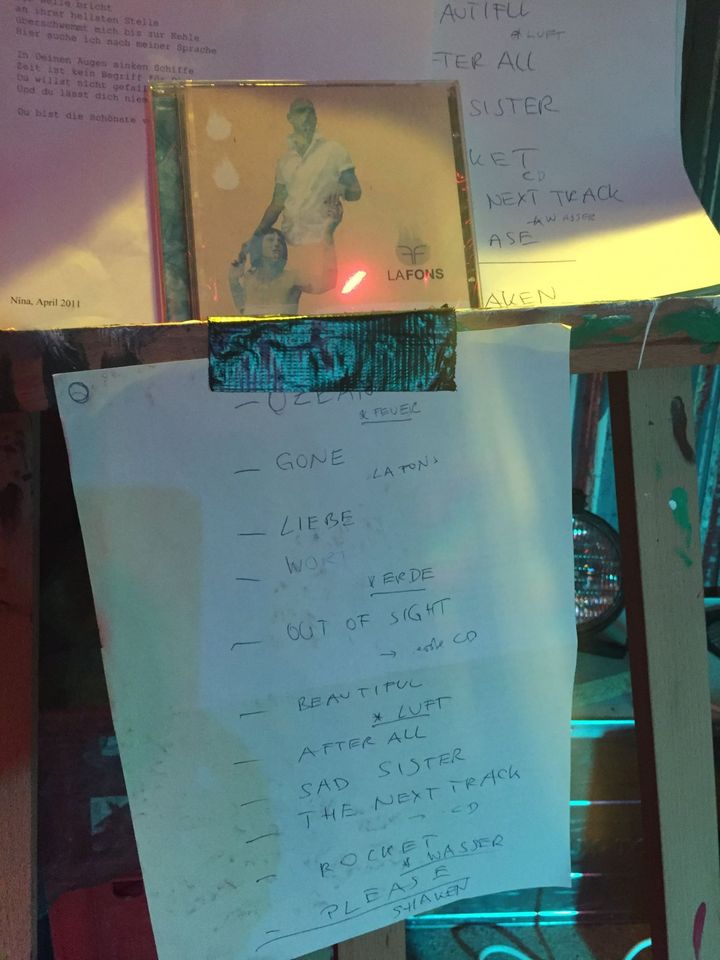 Welle bricht
an ihrer hellsten Stelle
überschwemmt mich bis zur Kehle
Hier suche ich nach meiner Sprache
In Deinen Augen sinken Schiffe
Zeit ist kein Begriff für
Du willst nicht
Und du lässt dich
Du bist die Schönste
Nina, April 2011
AUTIFUL
* LUFT
TER ALL
SISTER
KET
CD
NEXT TRACK
* WASSER
ASE
AKEN
LAFONS
- OZEAN
* FEUER
- GONE
LAFONS
- LIEBE
- WORT
* ERDE
- OUT OF SIGHT
→ CD
- BEAUTIFUL
* LUFT
- AFTER ALL
- SAD SISTER
- THE NEXT TRACK
→ CD
- ROCKET
* WASSER
- PLEASE
SHAKEN